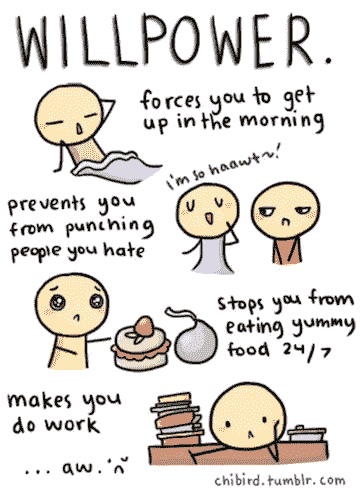 WILLPOWER.
forces you to get
up in the morning
I'm so haawt~!
prevents you
from punching
people you hate
stops you from
eating yummy
food 24/7
makes you
do work
... aw.
chibird.tumblr.com